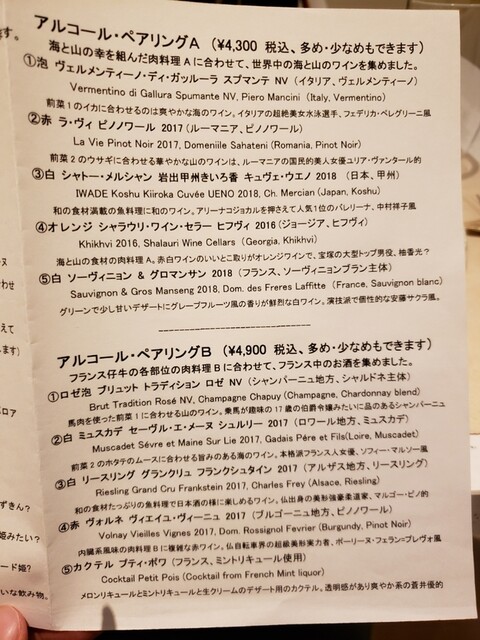 アルコール・ペアリングA (¥4,300 税込、多め・少なめもできます)
海と山の幸を組んだ肉料理Aに合わせて、世界中の海と山のワインを集めました。
①泡 ヴェルメンティーノ・ディ・ガッルーラ スプマンテ NV (イタリア、ヴェルメンティーノ)
Vermentino di Gallura Spumante NV, Piero Mancini (Italy, Vermentino)
前菜1のイカに合わせるのは爽やかな海のワイン。イタリアの超絶美女水泳選手、フェデリカ・ペレグリーニ風
②赤 ラ・ヴィ ピノノワール 2017 (ルーマニア、ピノノワール)
La Vie Pinot Noir 2017, Domeniile Sahateni (Romania, Pinot Noir)
前菜2のウサギに合わせる華やかな山のワインは、ルーマニアの国民的美人女優ユリア・ヴァンタール的
③白 シャトー・メルシャン 岩出甲州きいろ香 キュヴェ・ウエノ 2018 (日本、甲州)
IWADE Koshu Kiiroka Cuvée UENO 2018, Ch. Mercian (Japan, Koshu)
和の食材満載の魚料理に和のワイン。アリーナコジョカルを押さえて人気1位のバレリーナ、中村祥子風
④オレンジ シャラウリ・ワイン・セラー ヒフヴィ 2016 (ジョージア、ヒフヴィ)
Khikhvi 2016, Shalauri Wine Cellars (Georgia, Khikhvi)
海と山の食材の肉料理A。赤白ワインのいいとこ取りがオレンジワインで、宝塚の大型トップ男役、柚香光?
⑤白 ソーヴィニョン & グロマンサン 2018 (フランス、ソーヴィニョンブラン主体)
Sauvignon & Gros Manseng 2018, Dom. des Freres Laffitte (France, Sauvignon blanc)
グリーンで少し甘いデザートにグレープフルーツ風の香りが鮮烈な白ワイン。演技派で個性的な安藤サクラ風。
アルコール・ペアリングB (¥4,900 税込、多め・少なめもできます)
フランス仔牛の各部位の肉料理Bに合わせて、フランス中のお酒を集めました。
①ロゼ泡 ブリュット トラディション ロゼ NV (シャンパーニュ地方、シャルドネ主体)
Brut Tradition Rosé NV, Champagne Chapuy (Champagne, Chardonnay blend)
馬肉を使った前菜1に合わせる山のワイン。乗馬が趣味の17歳の伯爵令嬢みたいに品のあるシャンパーニュ
②白 ミュスカデ セーヴル・エ・メーヌ シュルリー 2017 (ロワール地方、ミュスカデ)
Muscadet Sévre et Maine Sur Lie 2017, Gadais Pére et Fils(Loire, Muscadet)
前菜2のホタテのムースに合わせる旨みのある海のワイン。本格派フランス人女優、ソフィー・マルソー風
③白 リースリング グランクリュ フランクシュタイン 2017 (アルザス地方、リースリング)
Riesling Grand Cru Frankstein 2017, Charles Frey (Alsace, Riesling)
和の食材たっぷりの魚料理で日本酒の様に楽しめるワイン。仏出身の美形強豪柔道家、マルゴー・ピノ的
④赤 ヴォルネ ヴィエイユ・ヴィーニュ 2017 (ブルゴーニュ地方、ピノノワール)
Volnay Vieilles Vignes 2017, Dom. Rossignol Fevrier (Burgundy, Pinot Noir)
内臓系風味の肉料理Bに複雑な赤ワイン。仏自転車界の超級美形実力者、ポーリーヌ・フェラン=プレヴォ風
⑤カクテル プティ・ポワ (フランス、ミントリキュール使用)
Cocktail Petit Pois (Cocktail from French Mint liquor)
メロンリキュールとミントリキュールと生クリームのデザート用のカクテル。透明感があり爽やか系の蒼井優的